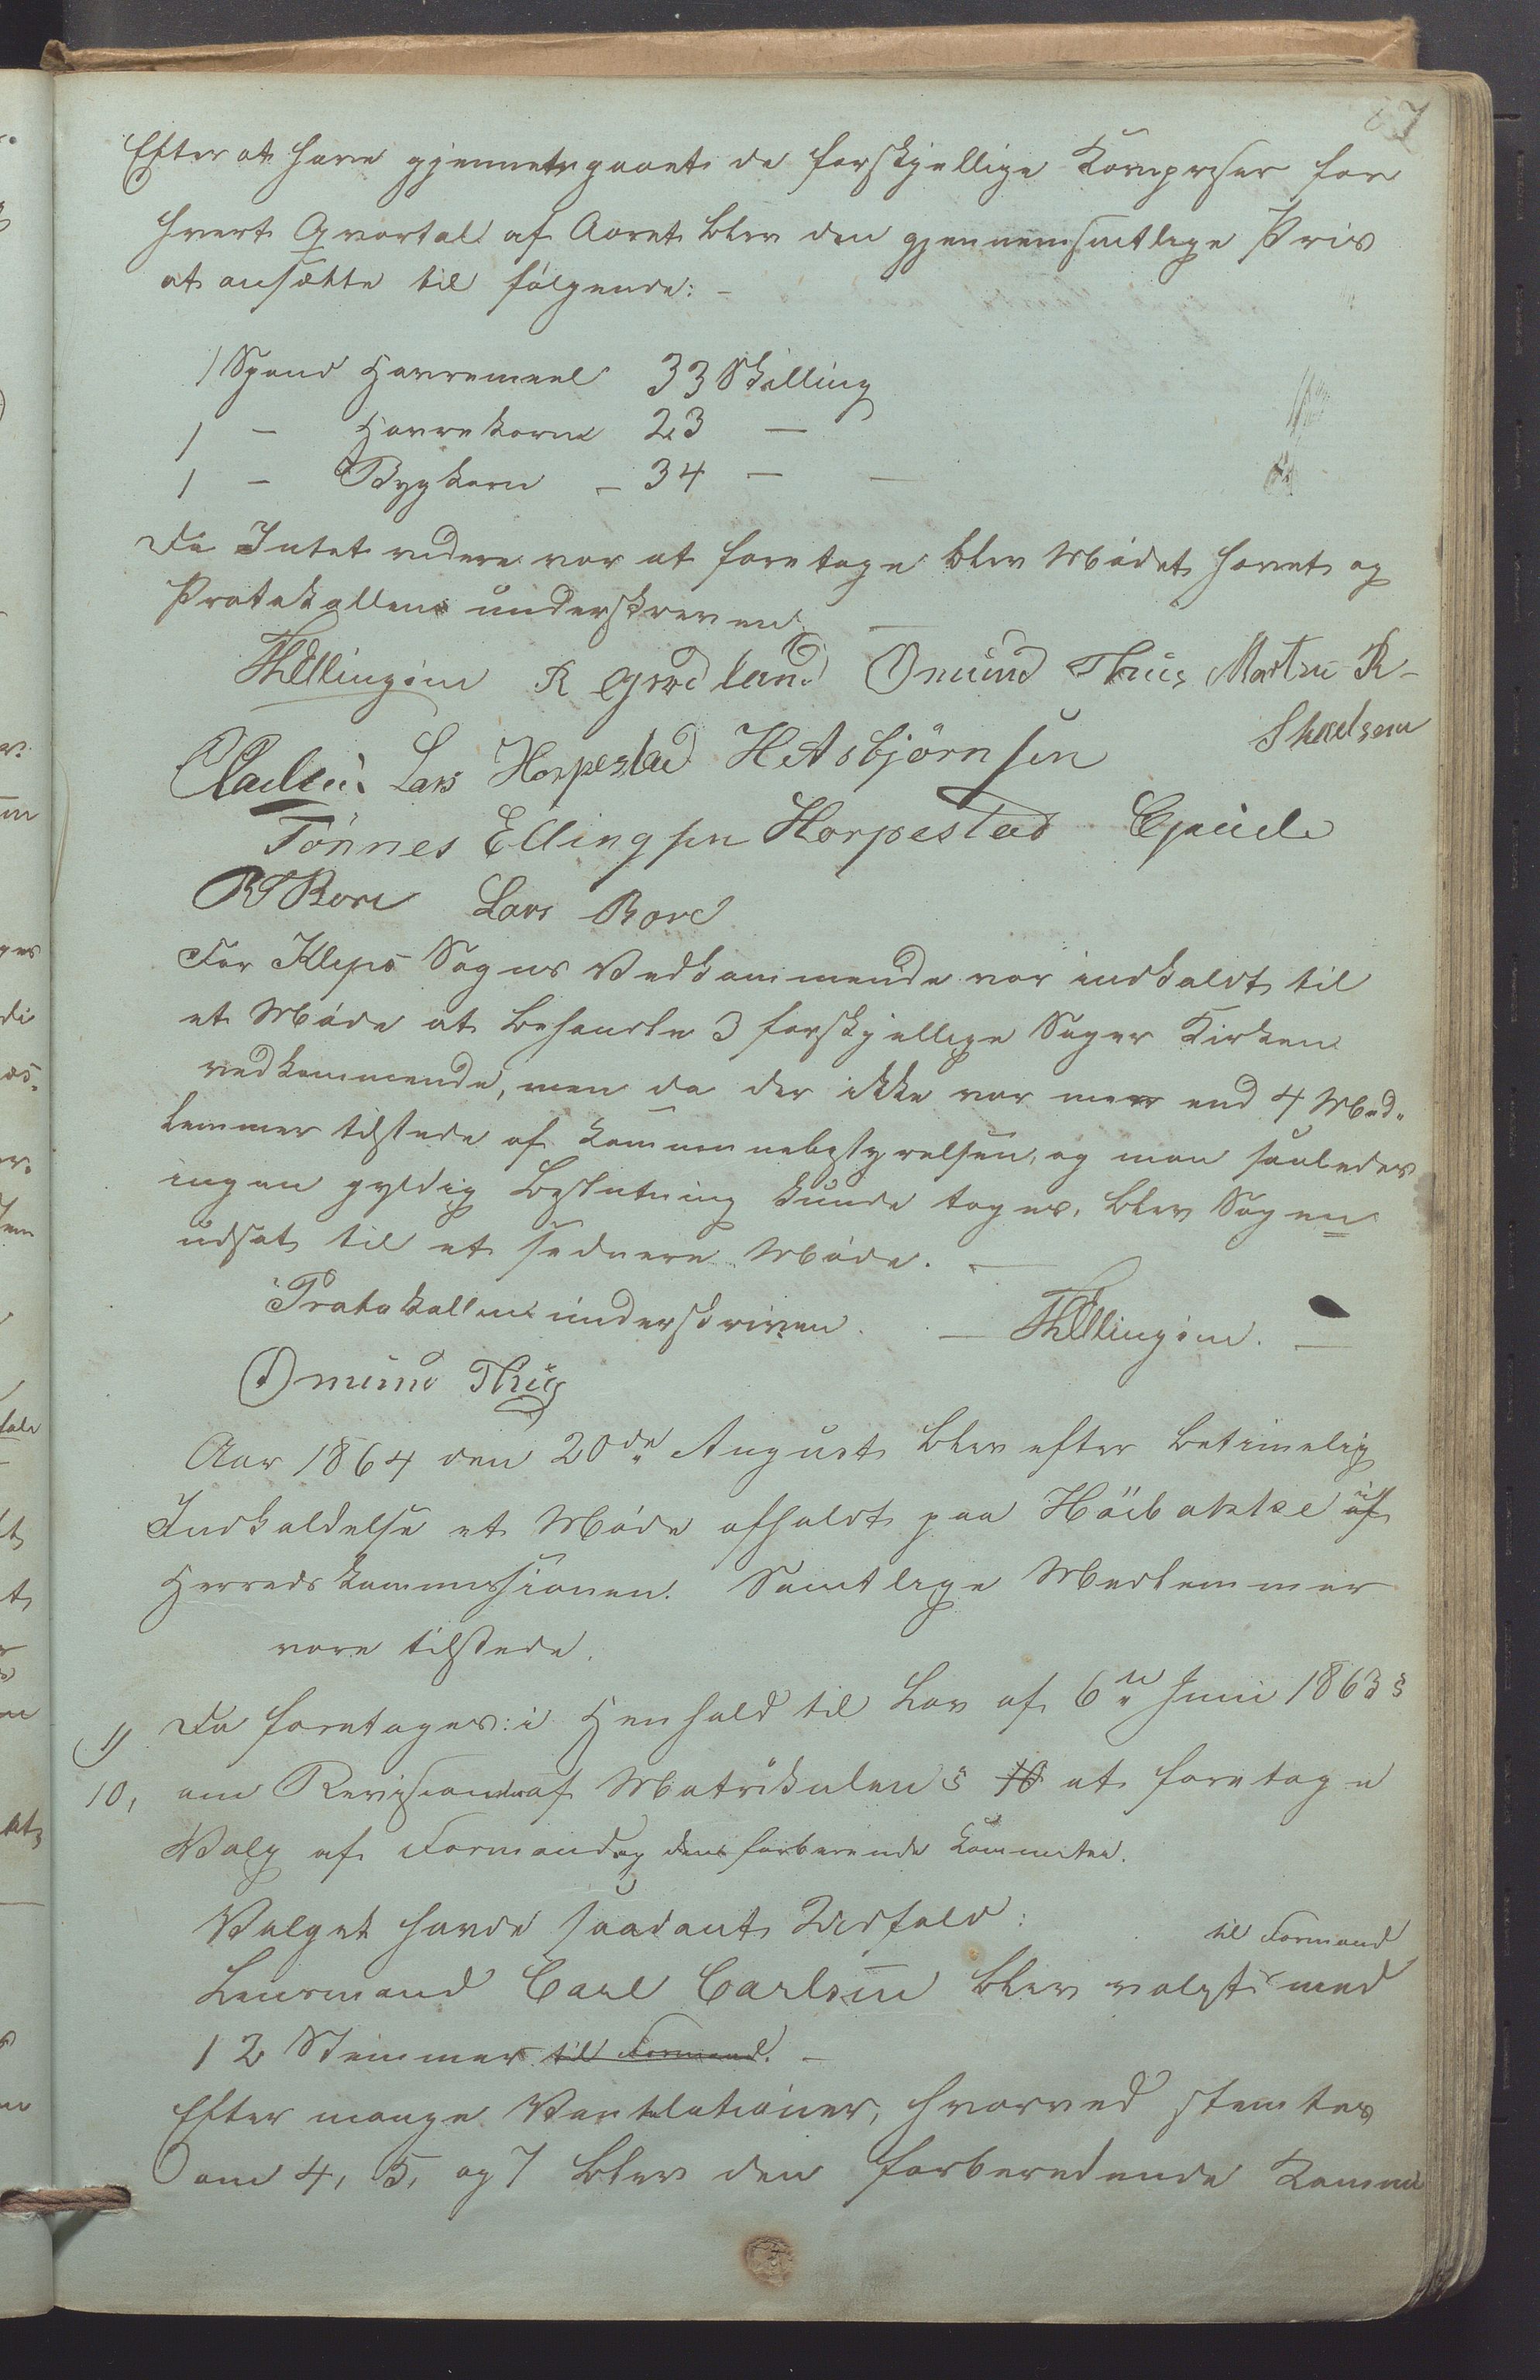 87
Efter at have gjennemgaaet de forskjellige Kornpriser for
hvert Qvartal af Aaret blev den gjennemsnitlige Pris
at ansætte til følgende: –
1 Spand Havremeel 33 Skilling
1 – Havrekorn 23 –
1 – Bygkorn – 34 – –
Da Intet videre var at foretage blev Mødet hævet og
Protokollen underskreven. –
Omund Thu Martin R –
Lars Horpestad H Asbjörnsen
Tönnes Ellingsen Horpestad
Bore Lars Bore
For Kleps Sogns Vedkommende var indkaldt til
et Møde at behandle 3 forskjellige Sager Kirken
vedkommende, men da der ikke var meer end 4 Med-
lemmer tilstede af Kommunebestyrelsen, og man saaledes
ingen gyldig Beslutning kunde tages, blev Sagen
udsat til et sednere Møde. –
Protokollen underskriven. –
Omund Thu
Aar 1864 den 20de August blev efter betimelig
Indkaldelse et Møde afholdt paa Höibakke af
Herredskommissionen. Samtlige Medlemmer
vare tilstede.
1) Da foretages: i Henhold til Lov af 6te Juni 1863 §
10, om Revision af Matrikulen § 10 at foretage
Valg af Formand og den forberende Kommitee.
Valget havde saadant Udfald:
til Formand
Lensmand Carl Carlsen blev valgt med
12 Stemmer til Formand. –
Efter mange Ventilationer, hvorved stemtes
om 4, 5, og 7 blev den forberedende Kommi